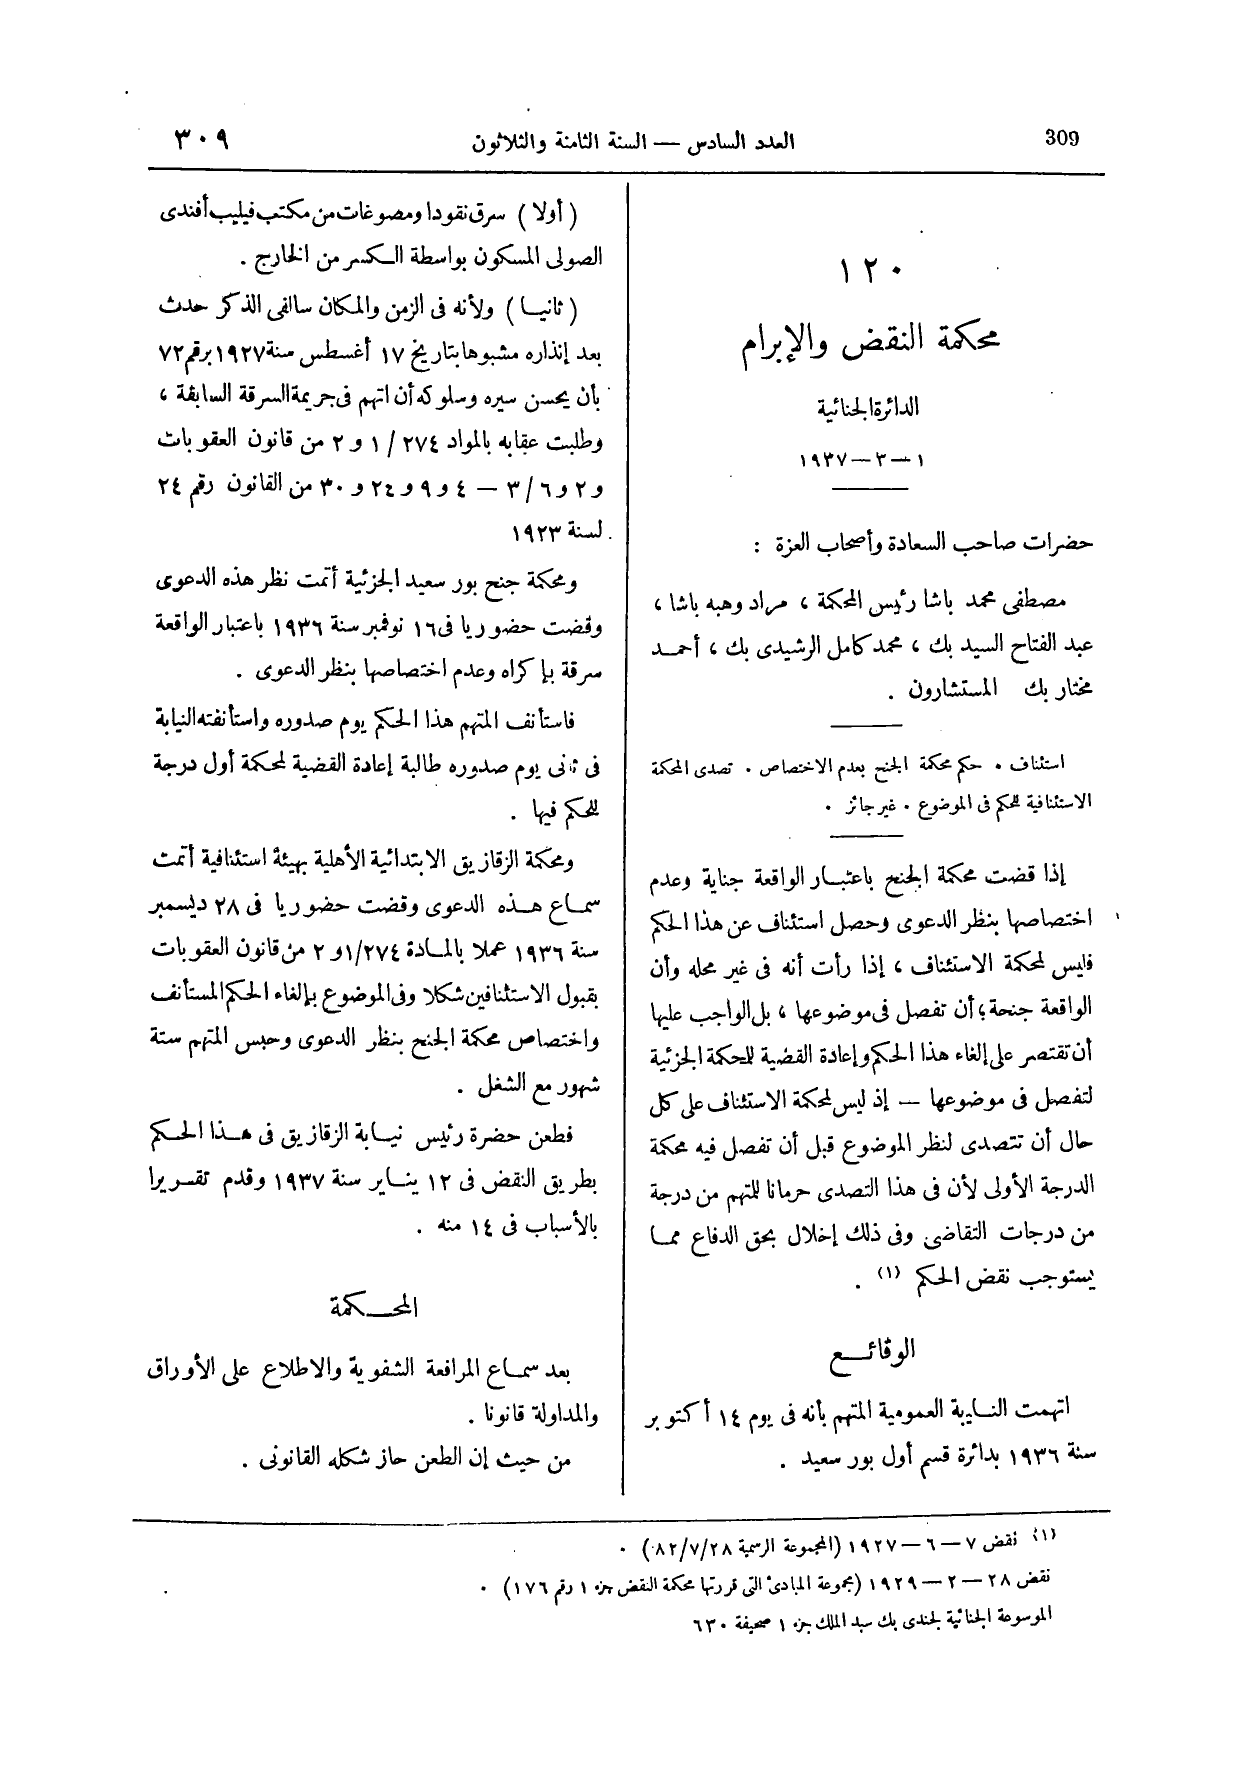 309
العدد السادس — السنة الثامنة والثلاثون
٣٠٩
١٢٠
محكمة النقض والإبرام
الدائرة الجنائية
١ — ٣ — ١٩٣٧
حضرات صاحب السعادة وأصحاب العزة :
مصطفى محمد باشا رئيس المحكمة ، مراد وهبه باشا ،
عبد الفتاح السيد بك ، محمد كامل الرشيدى بك ، أحمد
مختار بك المستشارون .
استئناف . حكم محكمة الجنح بعدم الاختصاص . تصدى المحكمة
الاستئنافية للحكم فى الموضوع . غير جائز .
إذا قضت محكمة الجنح باعتبار الواقعة جناية وعدم
اختصاصها بنظر الدعوى وحصل استئناف عن هذا الحكم
فليس لمحكمة الاستئناف ، إذا رأت أنه فى غير محله وأن
الواقعة جنحة ، أن تفصل فى موضوعها ، بل الواجب عليها
أن تقتصر على إلغاء هذا الحكم وإعادة القضية للمحكمة الجزئية
لتفصل فى موضوعها — إذ ليس لمحكمة الاستئناف على كل
حال أن تتصدى لنظر الموضوع قبل أن تفصل فيه محكمة
الدرجة الأولى لأن فى هذا التصدى حرمانا للمتهم من درجة
من درجات التقاضى وفى ذلك إخلال بحق الدفاع مما
يستوجب نقض الحكم (١) .
الوقائع
اتهمت النيابة العمومية المتهم بأنه فى يوم ١٤ أكتوبر
سنة ١٩٣٦ بدائرة قسم أول بور سعيد .
(أولا) سرق نقودا ومصوغات من مكتب فيليب أفندى
الصولى المسكون بواسطة الكسر من الخارج .
(ثانيا) ولأنه فى الزمن والمكان سالفى الذكر حدث
بعد إنذاره مشبوها بتاريخ ١٧ أغسطس سنة ١٩٢٧ برقم ٧٢
بأن يحسن سيره وسلوكه أن اتهم فى جريمة السرقة السابقة ،
وطلبت عقابه بالمواد ٢٧٤ / ١ و ٢ من قانون العقوبات
و ٢ و ٦ / ٣ — ٤ و ٩ و ٢٤ و ٣٠ من القانون رقم ٢٤
لسنة ١٩٢٣
ومحكمة جنح بور سعيد الجزئية أتمت نظر هذه الدعوى
وقضت حضوريا فى ١٦ نوفمبر سنة ١٩٣٦ باعتبار الواقعة
سرقة بإكراه وعدم اختصاصها بنظر الدعوى .
فاستأنف المتهم هذا الحكم يوم صدوره واستأنفته النيابة
فى ثانى يوم صدوره طالبة إعادة القضية لمحكمة أول درجة
للحكم فيها .
ومحكمة الزقازيق الابتدائية الأهلية بهيئة استئنافية أتمت
سماع هذه الدعوى وقضت حضوريا فى ٢٨ ديسمبر
سنة ١٩٣٦ عملا بالمادة ٢٧٤/١و ٢ من قانون العقوبات
بقبول الاستئنافين شكلا وفى الموضوع بإلغاء الحكم المستأنف
واختصاص محكمة الجنح بنظر الدعوى وحبس المتهم ستة
شهور مع الشغل .
فطعن حضرة رئيس نيابة الزقازيق فى هذا الحكم
بطريق النقض فى ١٢ يناير سنة ١٩٣٧ وقدم تقريرا
بالأسباب فى ١٤ منه .
المحكمة
بعد سماع المرافعة الشفوية والاطلاع على الأوراق
والمداولة قانونا .
من حيث إن الطعن حاز شكله القانونى .
(١) نقض ٧ — ٦ — ١٩٢٧ (المجموعة الرسمية ٨٢/٧/٢٨) .
نقض ٢٨ — ٢ — ١٩٢٩ (مجموعة المبادئ التى قررتها محكمة النقض جزء ١ رقم ١٧٦) .
الموسوعة الجنائية لجندى بك عبد الملك جزء ١ صحيفة ٦٣٠